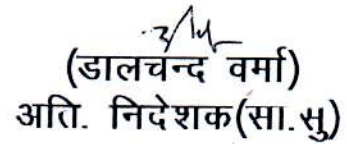 (डालचन्द वर्मा)
अति. निदेशक(सा.सु)